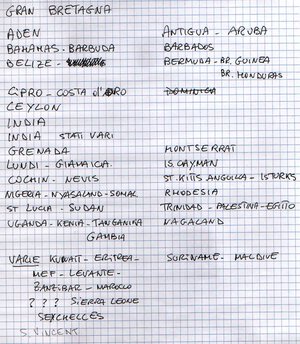 GRAN BRETAGNA
ADEN ANTIGUA - ARUBA
BAHAMAS - BARBUDA BARBADOS
BELIZE - BERMUDA - BR. GUINEA
BR. HONDURAS
CIPRO - COSTA d'ORO DOMINICA
CEYLON
INDIA
INDIA STATI VARI
GRENADA MONTSERRAT
LUNDI - GIAMAICA. IS. CAYMAN
COCHIN - NEVIS ST. KITIS ANGUILLA - IS TURKS
NIGERIA - NYASALAND - SOMAL RHODESIA
ST LUCIA - SUDAN TRINIDAD - PALESTINA - EGITTO
UGANDA - KENIA - TANGANIKA NAGALAND
GAMBIA
VARIE KUWAIT - ERITREA - SURINAME - MALDIVE
MEF - LEVANTE -
ZANZIBAR - MAROCCO
? ? ? SIERRA LEONE
SEYCHELLES
S. VINCENT